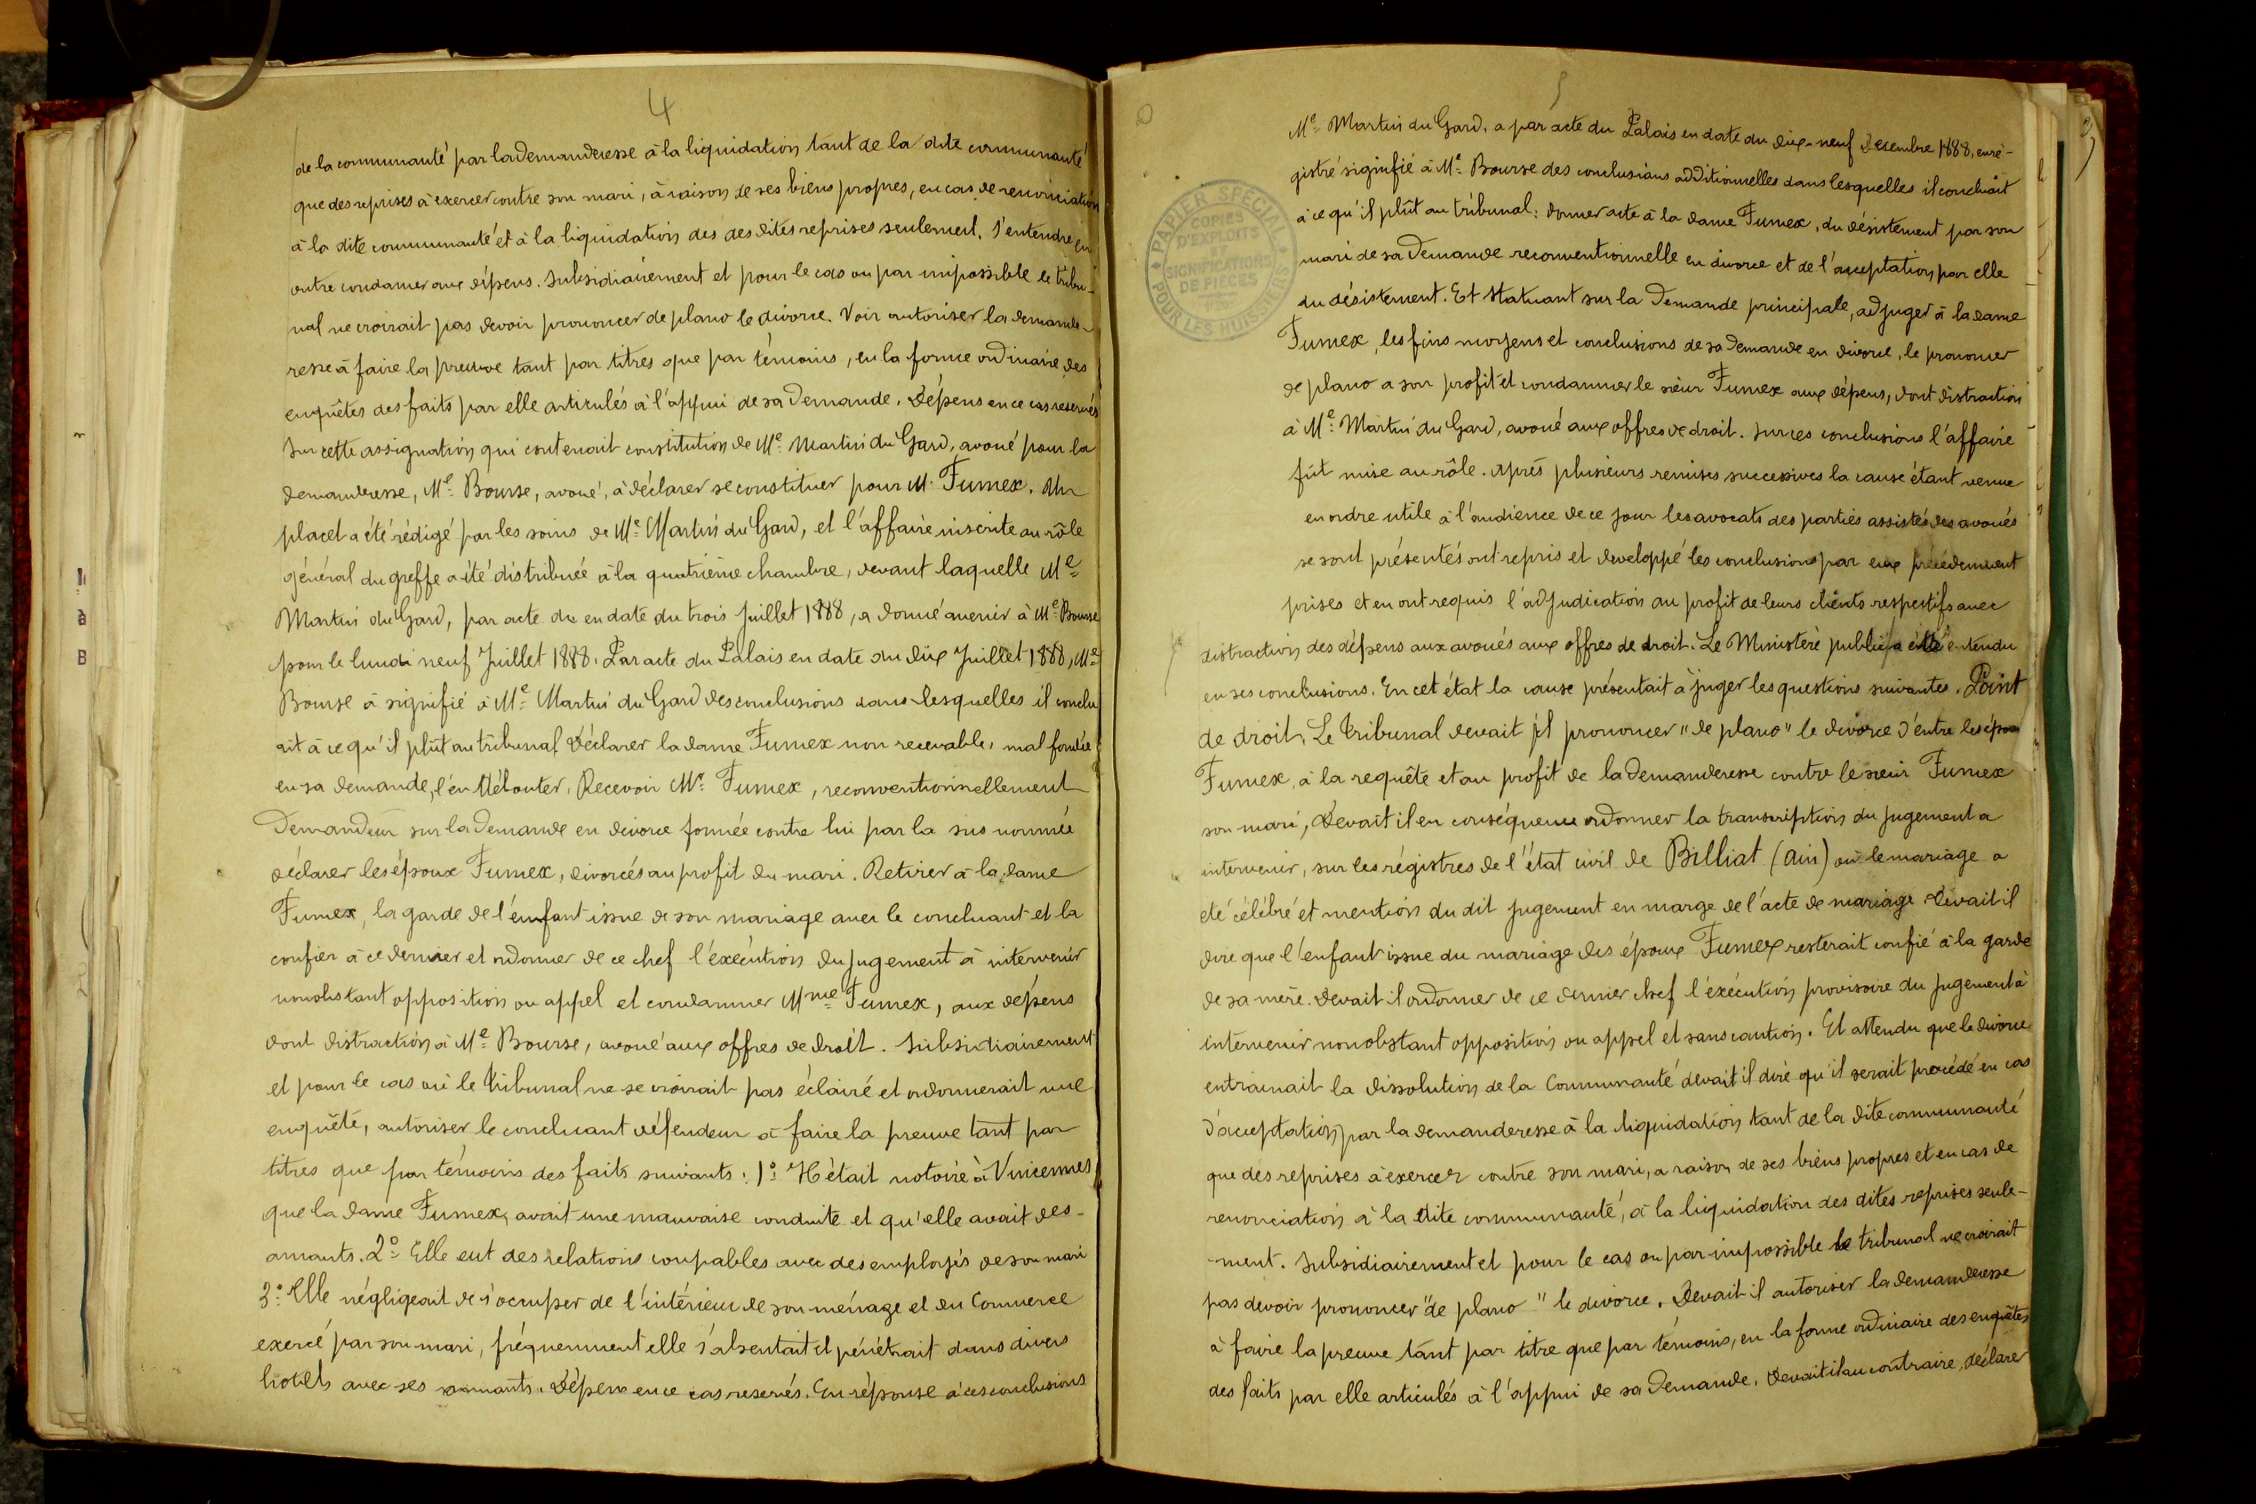 4
de la communauté par la demanderesse à la liquidation tant de la dite communauté
que des reprises à exercer contre son mari, à raison de ses biens propres, en cas de renonciation
à la dite communauté et à la liquidation des des dites reprises seulement. S'entendre en
outre condamner aux dépens. Subsidiairement et pour le cas ou par impossible le tribu-
nal ne croirait pas devoir prononcer de plano le divorce. Voir autoriser la demande-
resse à faire la preuve tant par titres que par témoins, en la forme ordinaire des
enquêtes des faits par elle articulés à l'appui de sa demande. Dépens en ce cas reservés
Sur cette assignation qui contenait constitution de Me Martin du Gard, avoué pour la
demanderesse, Me Bourse, avoué, à déclarer se constituer pour M. Fumex. Un
placet a été rédigé par les soins de Me Martin du Gard, et l'affaire inscrite au rôle
général du greffe a été distribuée à la quatrième chambre, devant laquelle Me
Martin du Gard, par acte du en date du trois Juillet 1888, a donné avenir à Me Bourse
pour le lundi neuf Juillet 1888. Par acte du Palais en date du dix Juillet 1888, Me
Bourse à signifié à Me Martin du Gard des conclusions dans lesquelles il conclu
ait à ce qu'il plût au tribunal déclarer la dame Fumex non recevable, mal fondée
en sa demande, l'en débouter. Recevoir Mr Fumex, reconventionnellement
Demandeur sur la demande en divorce formée contre lui par la sus nommée
déclarer les époux Fumex, divorcés au profit du mari. Retirer à la dame
Fumex, la garde de l'enfant issue de son mariage avec le concluant et la
confier à ce dernier et ordonner de ce chef l'exécution du jugement à intervenir
nonobstant opposition ou appel et condamner Mme Fumex, aux dépens
dont distraction à Me Bourse, avoué aux offres de droit. Subsidiairement
et pour le cas où le tribunal ne se croirait pas éclairé et ordonnerait une
enquête, autoriser le concluant défendeur à faire la preuve tant par
titres que par témoins des faits suivants: 1° Il était notoire à Vincennes
que la dame Fumex, avait une mauvaise conduite et qu'elle avait des-
amants. 2° Elle eut des relations coupables avec des employés de son mari
3° Elle négligeait de s'occuper de l'intérieur de son ménage et du Commerce
exercé par son mari, fréquemment elle s'absentait et pénétrait dans divers
hotels avec ses amants. Dépens en ce cas reservés. En réponse à ces conclusions
5
PAPIER SPÉCIAL
COPIES
D'EXPLOITS
SIGNIFICATIONS
DE PIÈCES
POUR LES HUISSIERS
Me Martin du Gard, a par acte du Palais en date du dix-neuf Décembre 1888, enré-
gistré signifié à Me Bourse des conclusions additionnelles dans lesquelles il concluait
à ce qu'il plût au tribunal: donner acte à la dame Fumex, du désistement par son
mari de sa demande reconventionnelle en divorce et de l'acceptation par elle
du désistement. Et statuant sur la demande principale, adjuger à la dame
Fumex, les fins moyens et conclusions de sa demande en divorce, le prononcer
de plano a son profit et condamner le sieur Fumex aux dépens, dont distraction
à Me Martin du Gard, avoué aux offres de droit. Sur ces conclusions l'affaire
fût mise au rôle. Après plusieurs remises successives la cause étant venue
en ordre utile à l'audience de ce jour les avocats des parties assistés des avoués
se sont présentés ont repris et developpé les conclusions par eux précédemment
prises et en ont requis l'adjudication au profit de leurs clients respectifs avec
distraction des dépens aux avoués aux offres de droit. Le Ministère public a été entendu
en ses conclusions. En cet état la cause présentait à juger les questions suivantes. Point
de droit. Le tribunal devait il prononcer "de plano" le divorce d'entre les époux
Fumex, à la requête et au profit de la demanderesse contre le sieur Fumex
son mari, Devait il en conséquence ordonner la transcription du jugement a
intervenir, sur les régistres de l'état civil de Billiat (Ain) où le mariage a
eté célébré et mention du dit jugement en marge de l'acte de mariage devait il
dire que l'enfant issue du mariage des époux Fumex resterait confié à la garde
de sa mère. Devait il ordonner de ce dernier chef l'exécution provisoire du jugement à
intervenir nonobstant opposition ou appel et sans caution. Et attendu que le divorce
entrainait la dissolution de la Communauté devait il dire qu'il serait procédé en cas
d'acceptation par la demanderesse à la liquidation tant de la dite communauté
que des reprises à exercer contre son mari, a raison de ses biens propres et en cas de
renonciation à la dite communauté, à la liquidation des dites reprises seule-
ment. Subsidiairement et pour le cas ou par impossible le tribunal ne croirait
pas devoir prononcer "de plano" le divorce. Devait il autoriser la demanderesse
à faire la preuve tant par titre que par témoins, en la forme ordinaire des enquêtes
des faits par elle articulés à l'appui de sa demande. Devait il au contraire, déclarer